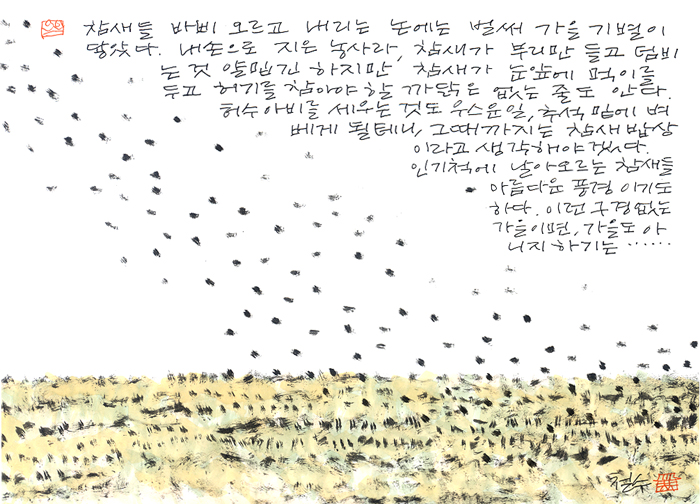 참새들 바삐 오르고 내리는 논에는 벌써 가을 기별이
닿았다. 내손으로 지은 농사라, 참새가 부리만 들고 덤비
는 것 얄밉긴 하지만, 참새가 눈앞에 먹이를
두고 허기를 참아야 할 까닭은 없는 줄도 안다.
허수아비를 세우는 것도 우스운 일, 추석 밑에 벼
베게 될테니, 그때까지는 참새 밥상
이라고 생각해야겠다.
인기척에 날아오르는 참새들
아름다운 풍경이기도
하다. 이런 구경없는
가을이면, 가을도 아
니지 하기는 ······
철수